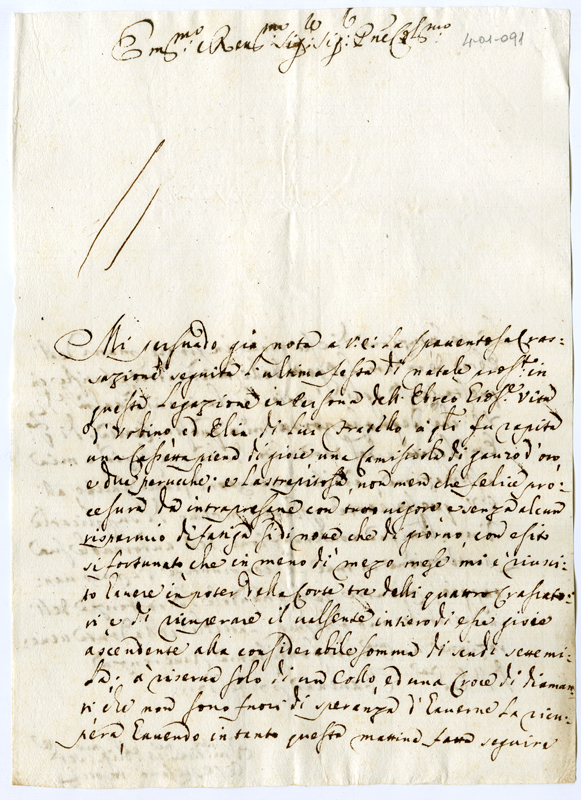 Em.mo e Reu.mo Sig.r Sig.r Pne Col.mo
4-01-091
Mi persuado già nota a V.E: la spauentosa Gras-
sazione seguita l'ultima festa di natale pross.o in
questa Legazione in Persona dell'Ebreo Gios.e Vita
d'Vrbino ed Elia di lui fratello à quali fu rapita
una Cassetta piena di gioie una Camisciola di ganzo d'oro
e due peruche; e la strepitosa, non men che felice pro-
cesura da intrapresane con tutto uigore e senza alcun
risparmio di fatiga sì di notte che di giorno, con esito
sì fortunato che in meno di mezo mese mi è riusci-
to hauere in poter della Corte tre delli quattro Grassato-
ri e di ricuperare il ualsente intiero di esse gioie
ascendente alla considerabile somma di scudi settemi-
la; à riserua solo di un Collo, ed una Croce di diaman-
ti che non sono fuori di speranza d'hauerne la ricu-
pera, hauendo in tanto questa mattina fatta seguire